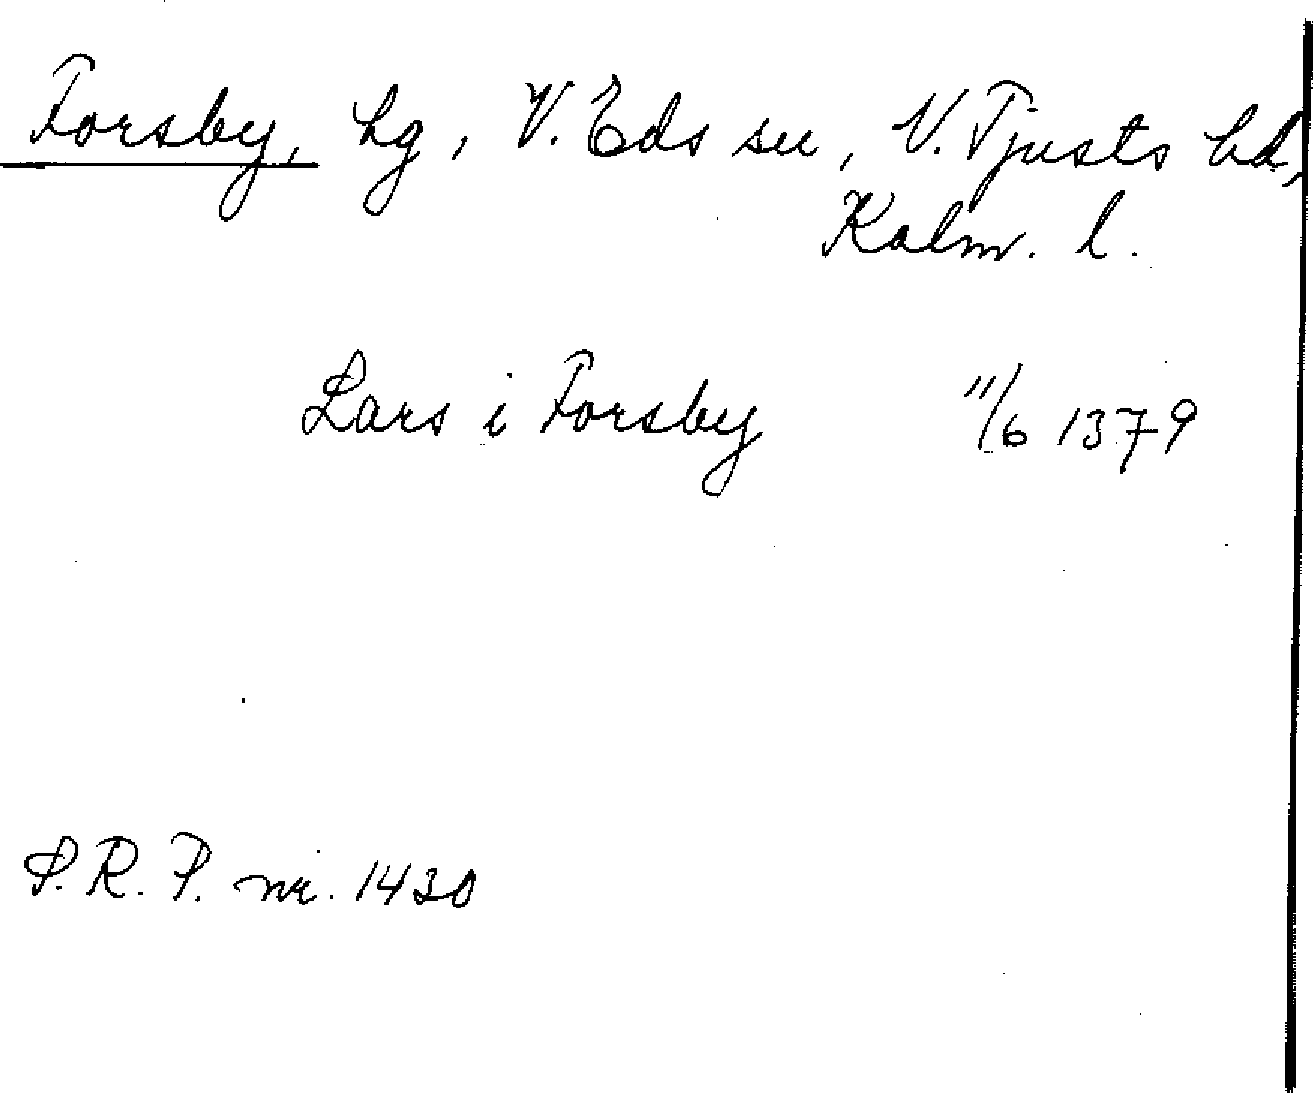 Forsby, hg, V. Eds sn, N. Tjusts hd,
Kalm. l.
Lars i Forsby 11/6 1379
S. R. P. nr. 1430